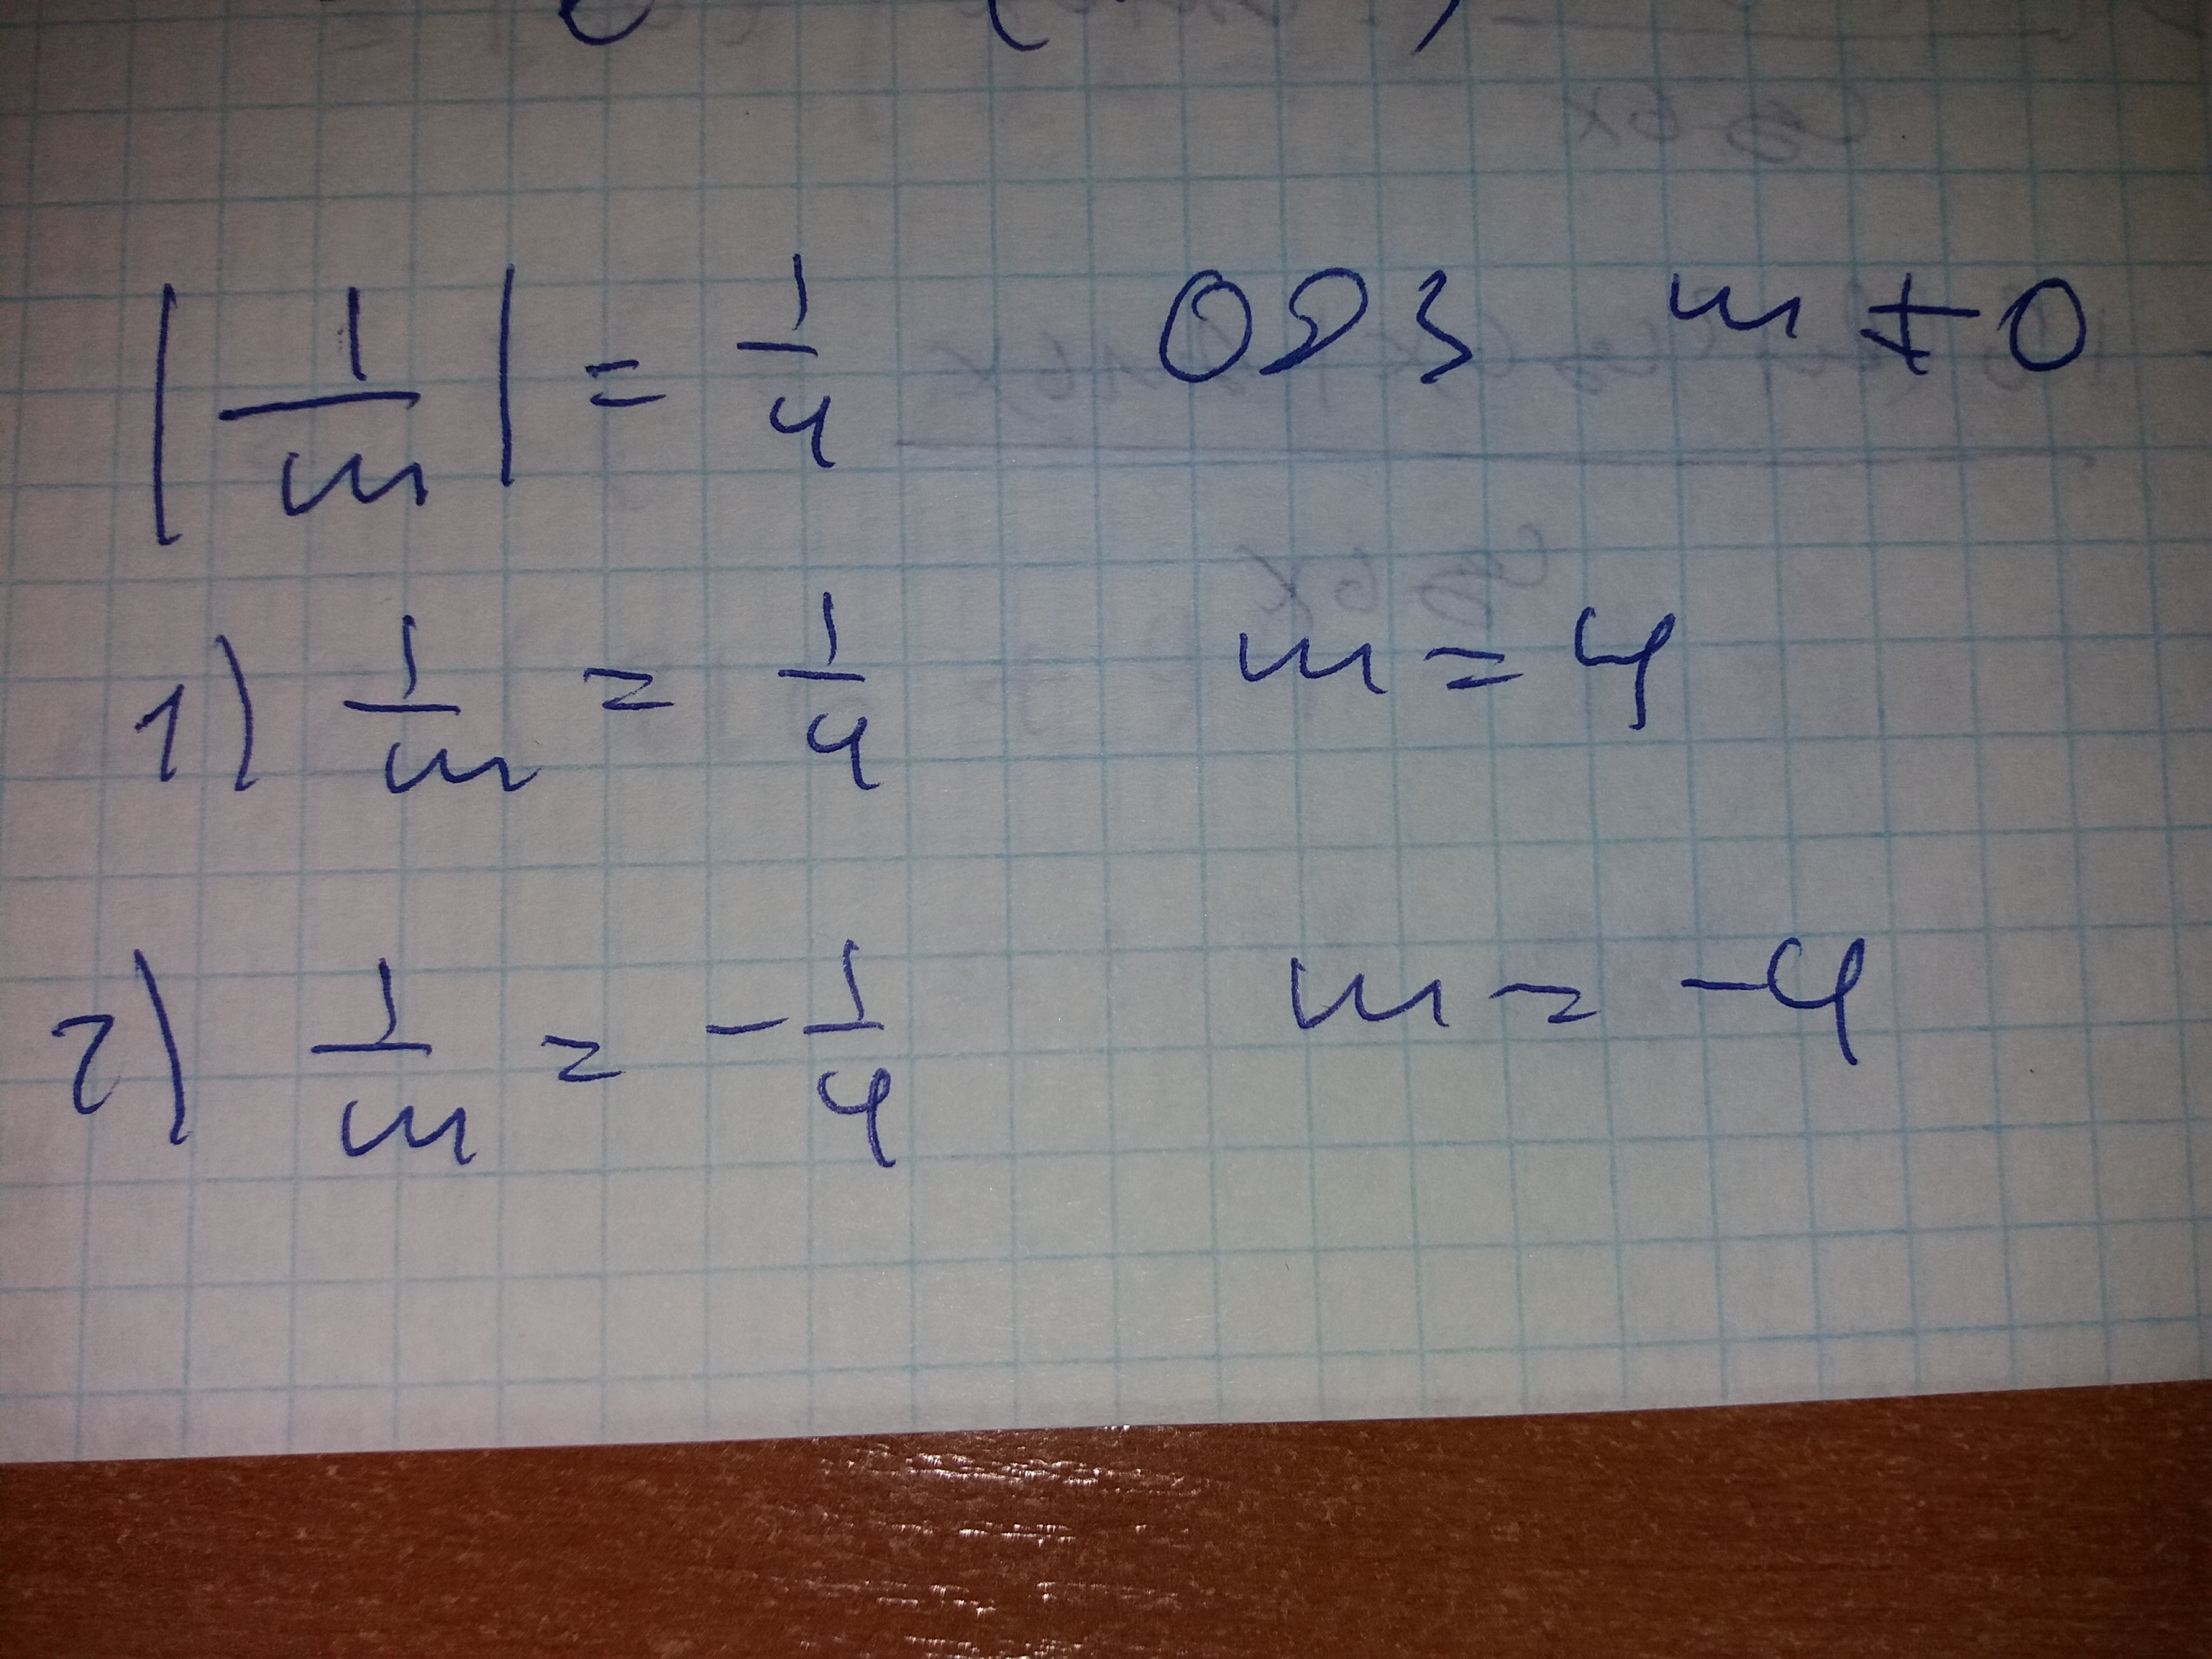 |1/m| = 1/4 ОДЗ m ≠ 0
1) 1/m = 1/4 m = 4
2) 1/m = -1/4 m = -4